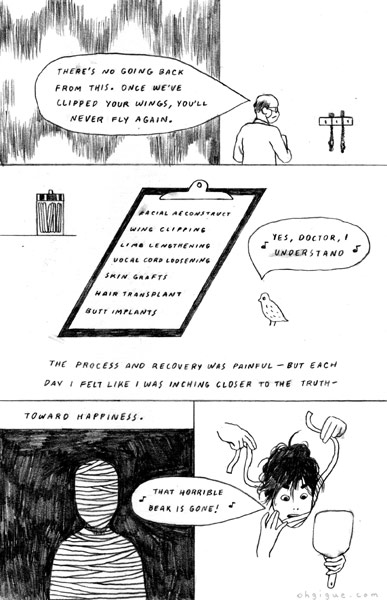 THERE'S NO GOING BACK
FROM THIS. ONCE WE'VE
CLIPPED YOUR WINGS, YOU'LL
NEVER FLY AGAIN.
FACIAL RECONSTRUCT
WING CLIPPING
LIMB LENGTHENING
VOCAL CORD LOOSENING
SKIN GRAFTS
HAIR TRANSPLANT
BUTT IMPLANTS
YES, DOCTOR, I
UNDERSTAND
THE PROCESS AND RECOVERY WAS PAINFUL — BUT EACH
DAY I FELT LIKE I WAS INCHING CLOSER TO THE TRUTH—
TOWARD HAPPINESS.
THAT HORRIBLE
BEAK IS GONE!
ohgigue.com